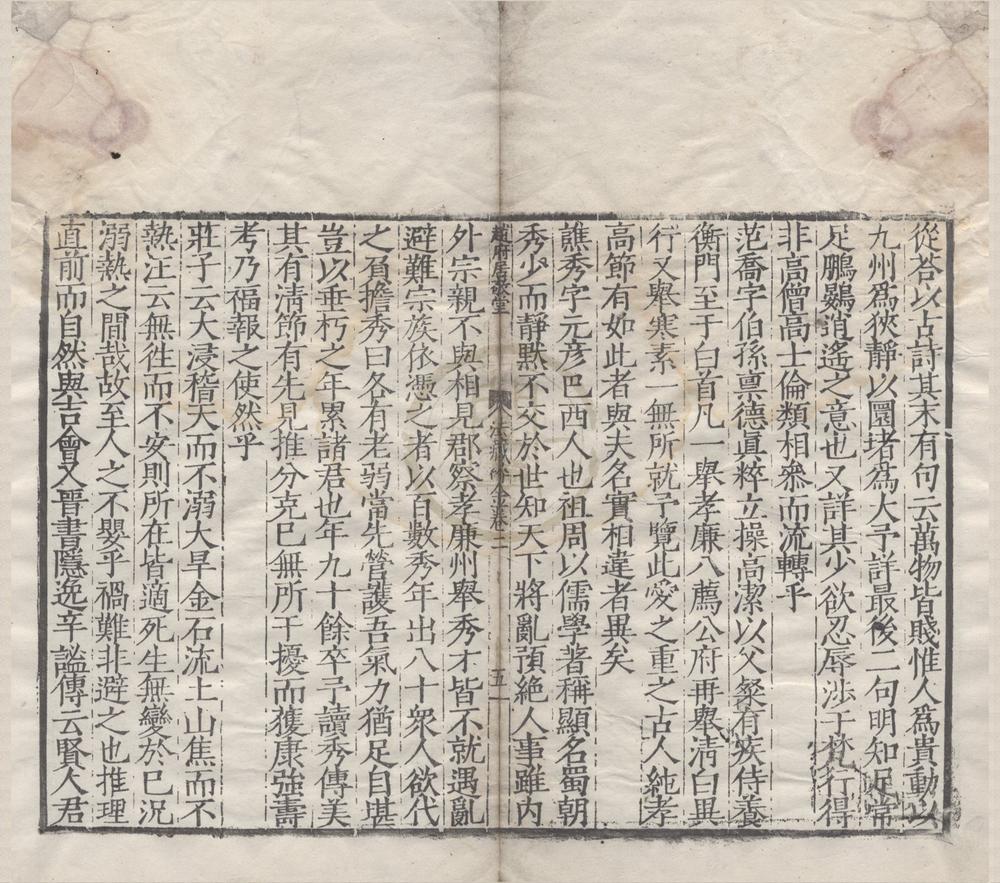 從荅以古詩其末有句云萬物皆賤惟人爲貴動以
九州爲狹靜以圜堵爲大予詳最後二句明知足常
足鵬鷃逍遙之意也又詳其少欲忍辱涉于梵行得
非高僧高士倫類相叅而流轉乎
范喬字伯孫禀德眞粹立操高潔以父粲有疾侍養
衡門至于白首凡一舉孝廉八薦公府再舉清白異
行又舉寒素一無所就予覽此愛之重之古人純孝
高節有如此者與夫名實相違者異矣
譙秀字元彦巴西人也祖周以儒學著稱顯名蜀朝
秀少而靜默不交於世知天下將亂預絶人事雖内
趙府居敬堂
法藏碎金卷二
五一
外宗親不與相見郡察孝廉州舉秀才皆不就遇亂
避難宗族依憑之者以百數秀年出八十衆人欲代
之負擔秀曰各有老弱當先營護吾氣力猶足自堪
豈以垂朽之年累諸君也年九十餘卒予讀秀傳美
其有淸節有先見推分克巳無所干擾而獲康強壽
考乃福報之使然乎
莊子云大浸稽天而不溺大旱金石流土山焦而不
熱注云無徃而不安則所在皆適死生無變於巳况
溺熱之間哉故至人之不嬰乎禍難非避之也推理
直前而自然與吉會又晋書隱逸辛謐傳云賢人君